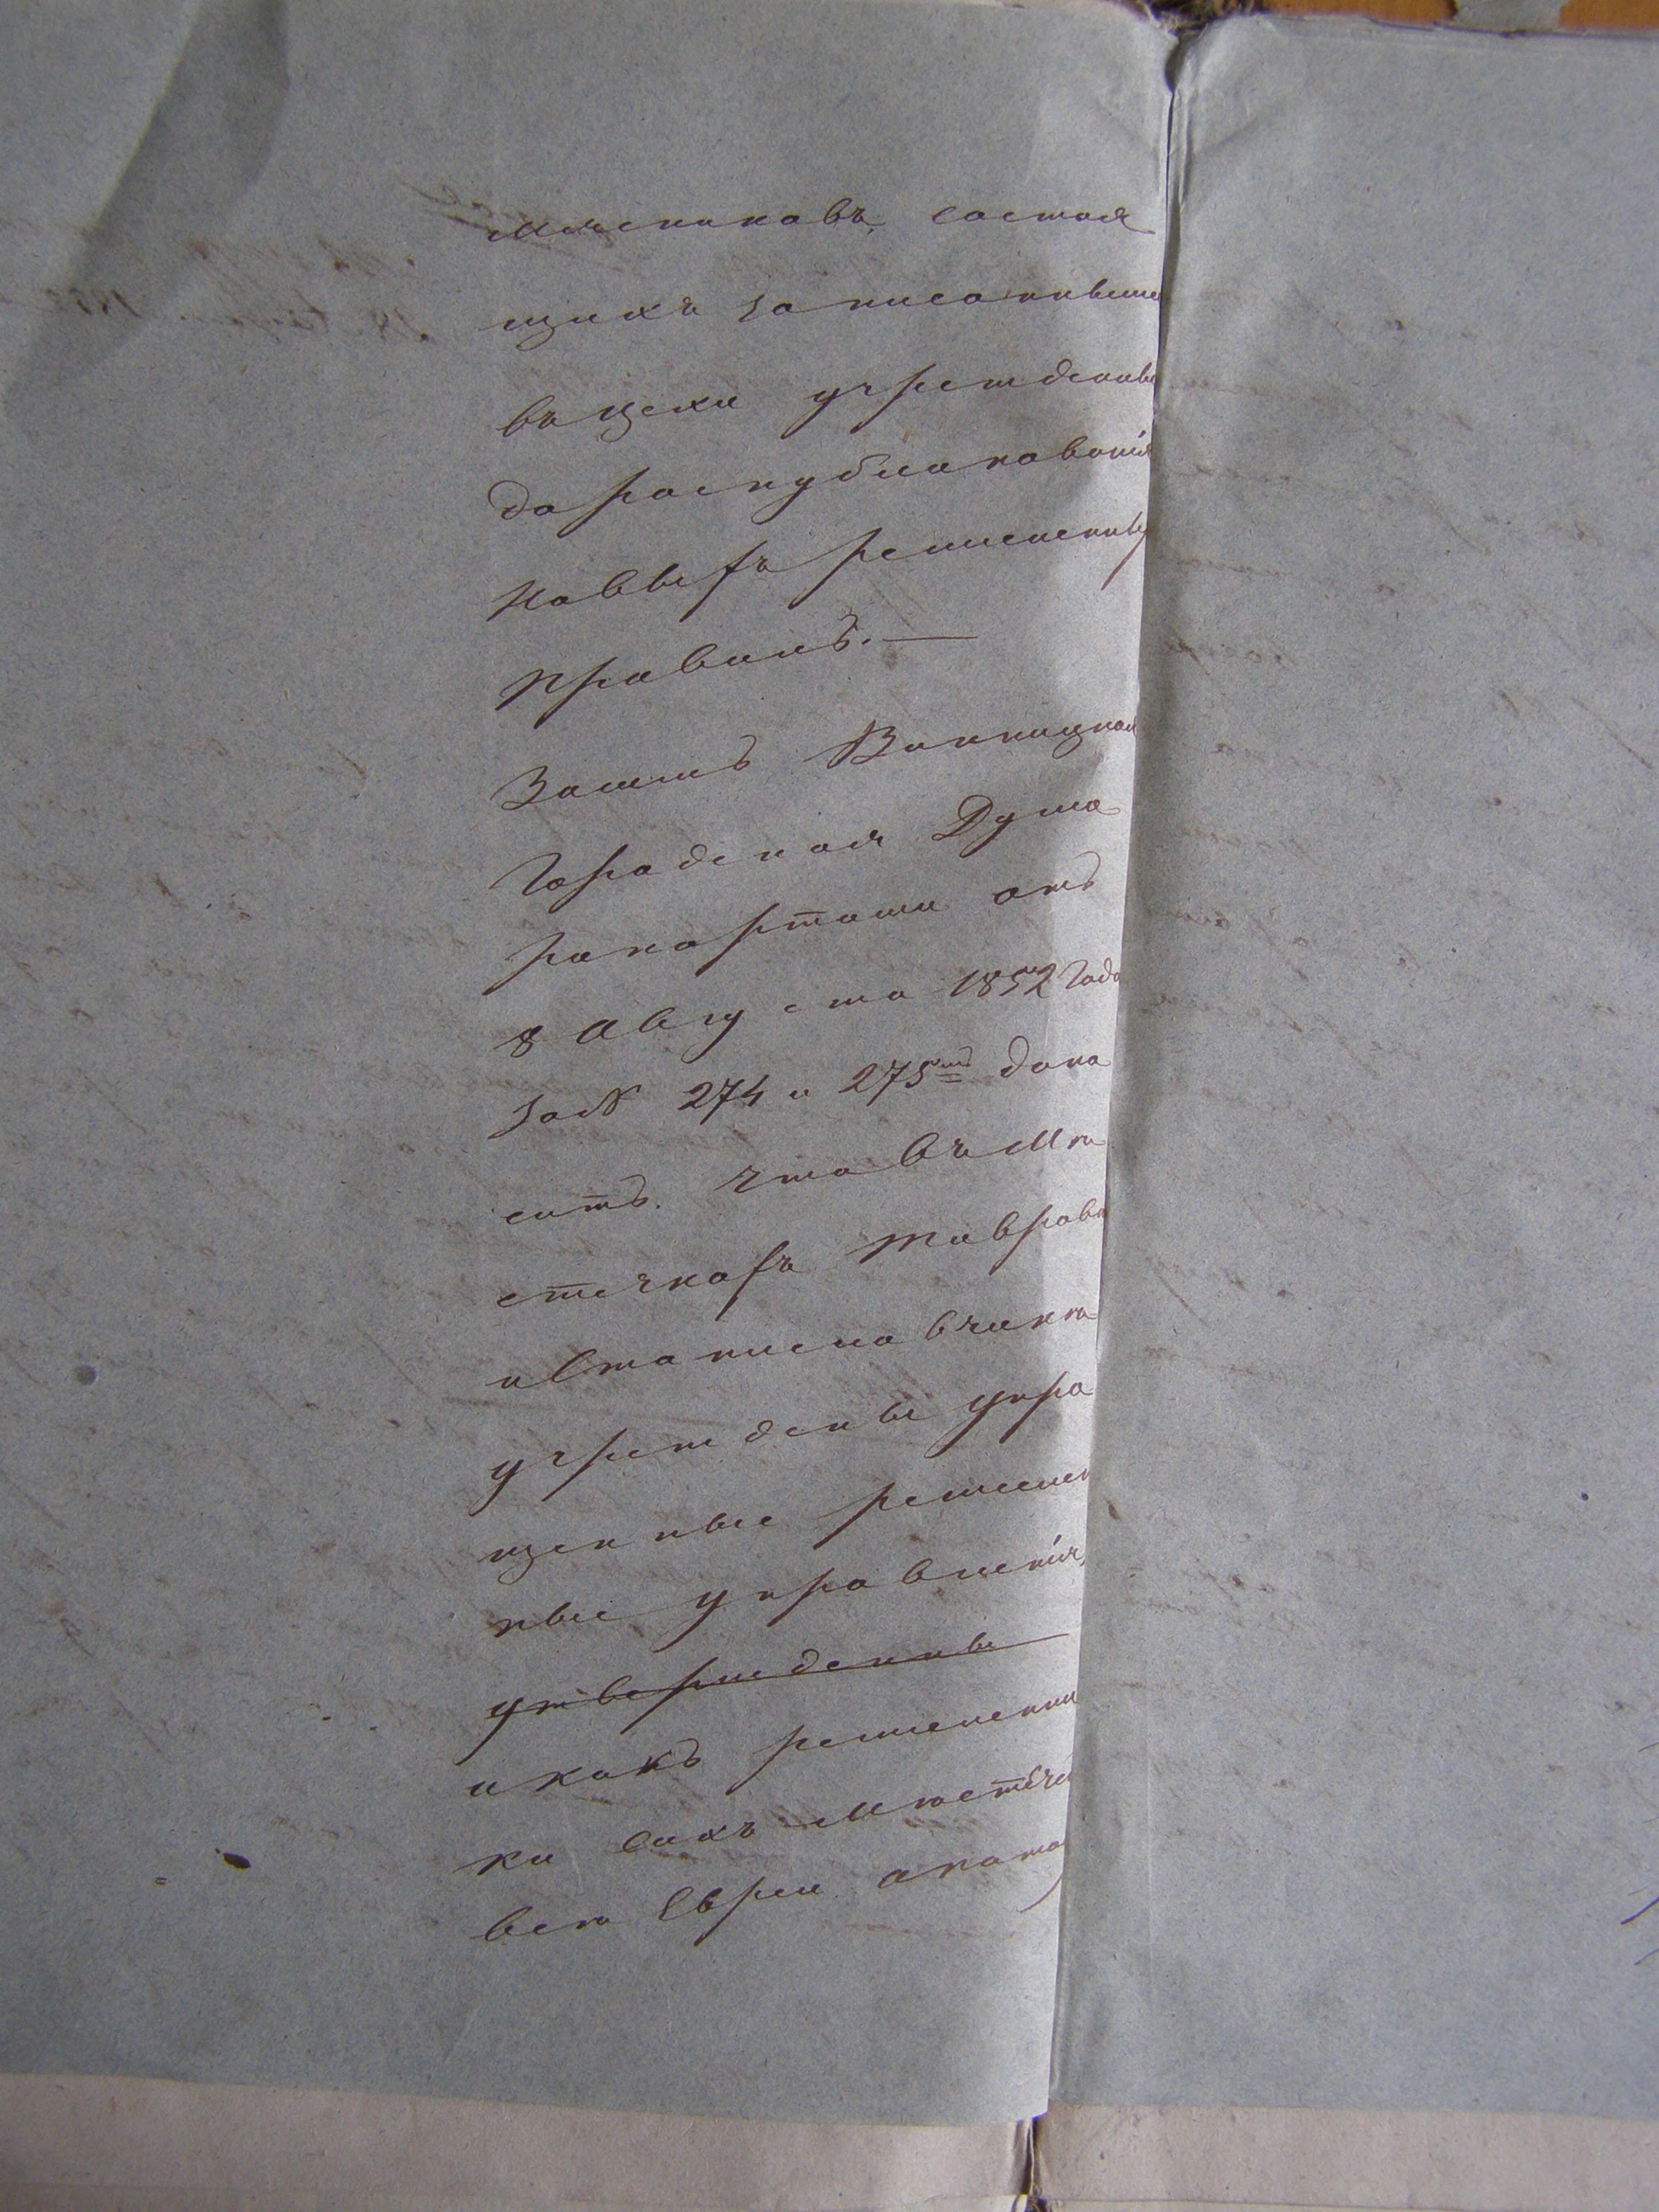 мясниковъ, состоя
щихъ записанныме
въ цехи учрежденны
до распубликованія
новыхъ ремесленны
правилъ.—
Затемъ Винницкая
Городская Дума
рапортами отъ
8 Августа 1852 Года
за № 274 и 275мъ доно
ситъ. что въ Мѣ
стечкахъ Тиврово
и Станиславчикѣ
учреждены упро
щенные ремеслен
ные управленія,
утверждены
и какъ ремесленни
ки сихъ мѣстече
всѣ Евреи